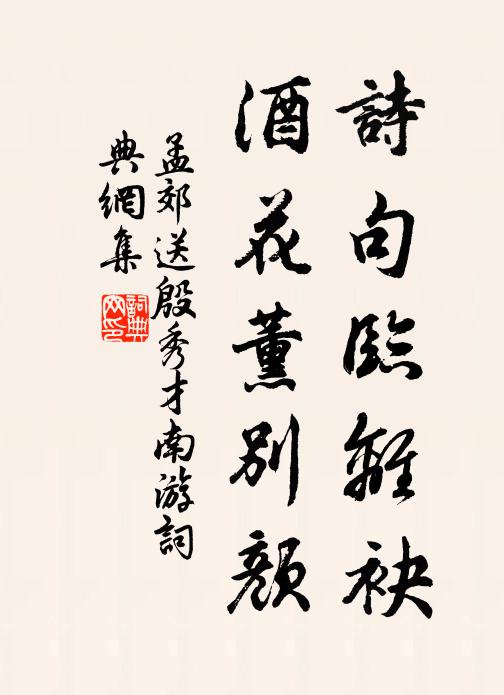 詩句臨離袂
酒花薰別顏
孟郊送殷秀才南游詞
典網集
詞典
网印